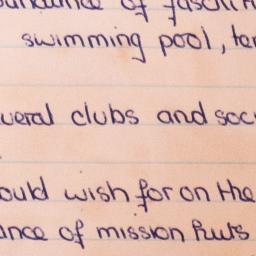 of
swimming pool, ten
veral clubs and soc
ould wish for on the
ance of mission huts